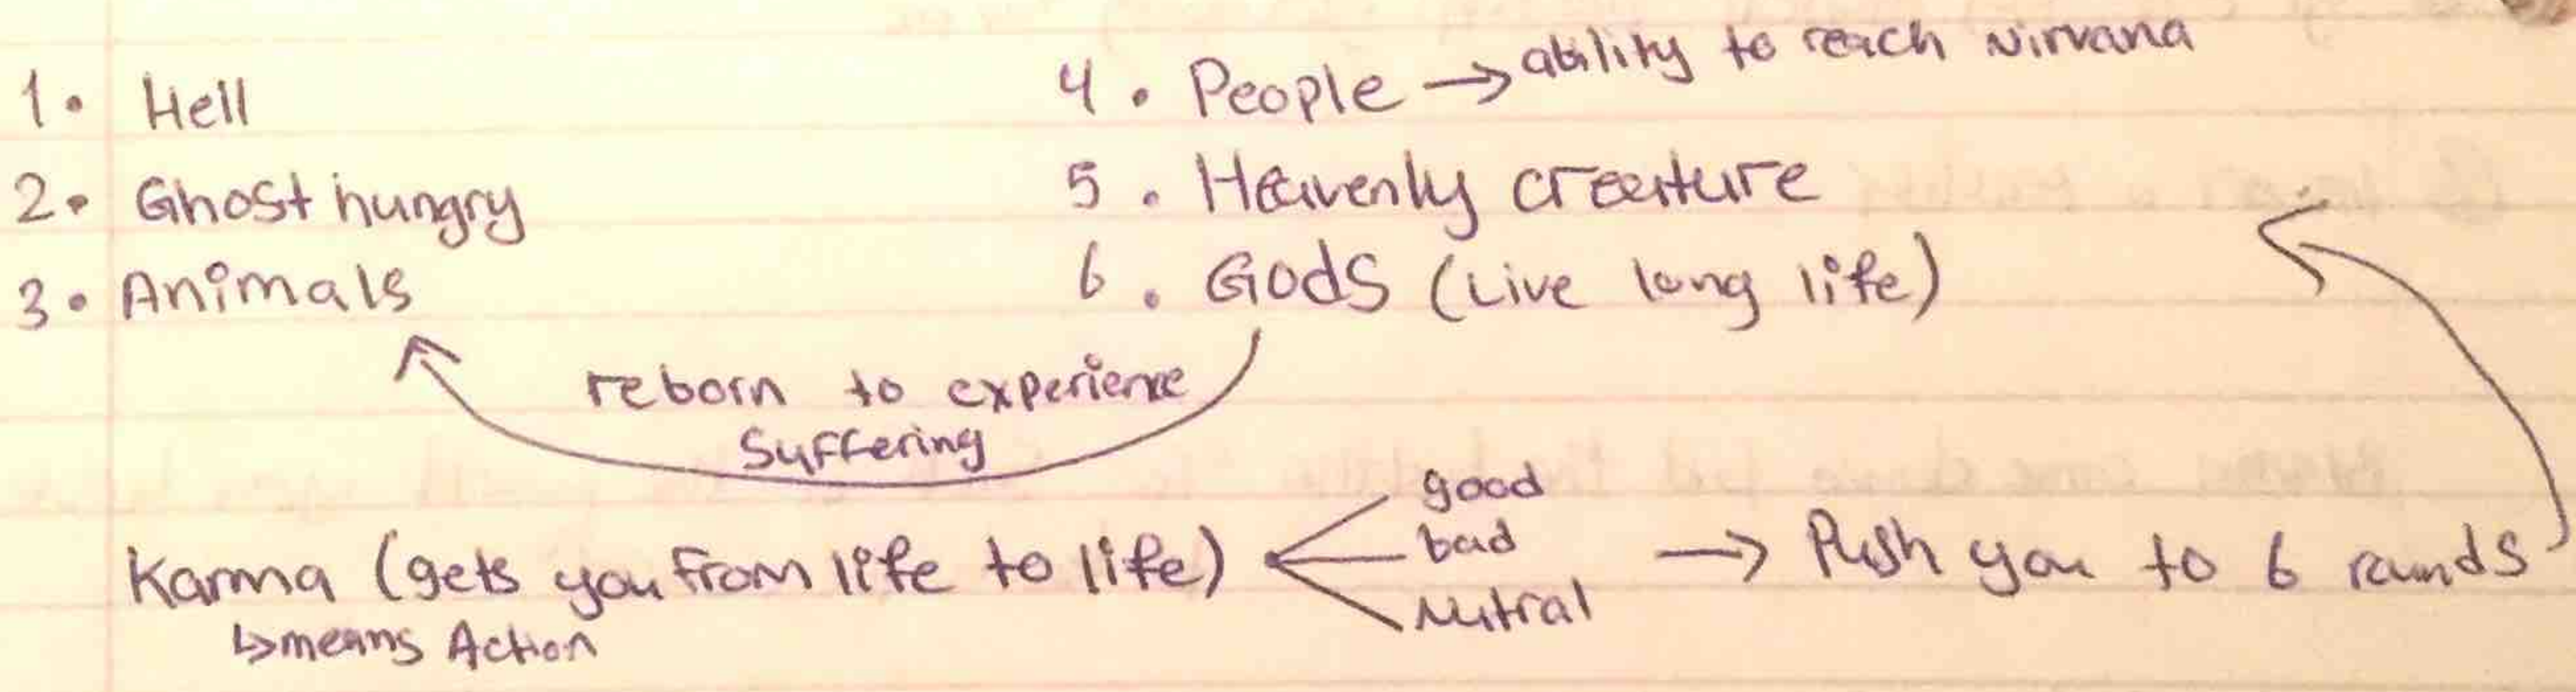 1. Hell
2. Ghost hungry
3. Animals
4. People → ability to reach Nirvana
5. Heavenly creature
6. Gods (Live long life)
reborn to experience
Suffering
Karma (gets you from life to life)
good
bad
Nutral
→ Push you to 6 rounds
↳ means Action